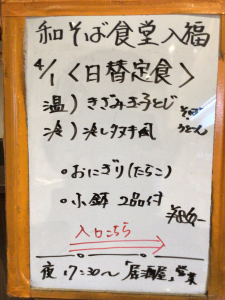 和そば食堂入福
4/1〈日替定食〉
温)きざみ玉子とじ
冷)冷したヌキ風 うどん
。おにぎり(たらこ)
。小鉢 2品付
入口こちら
夜、17:30〜「居酒屋」営業